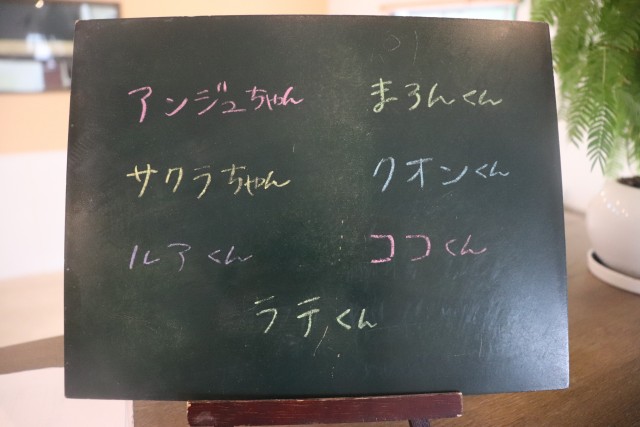 アンジュちゃん まろんくん
サクラちゃん クオンくん
ルアくん ココくん
ラテくん